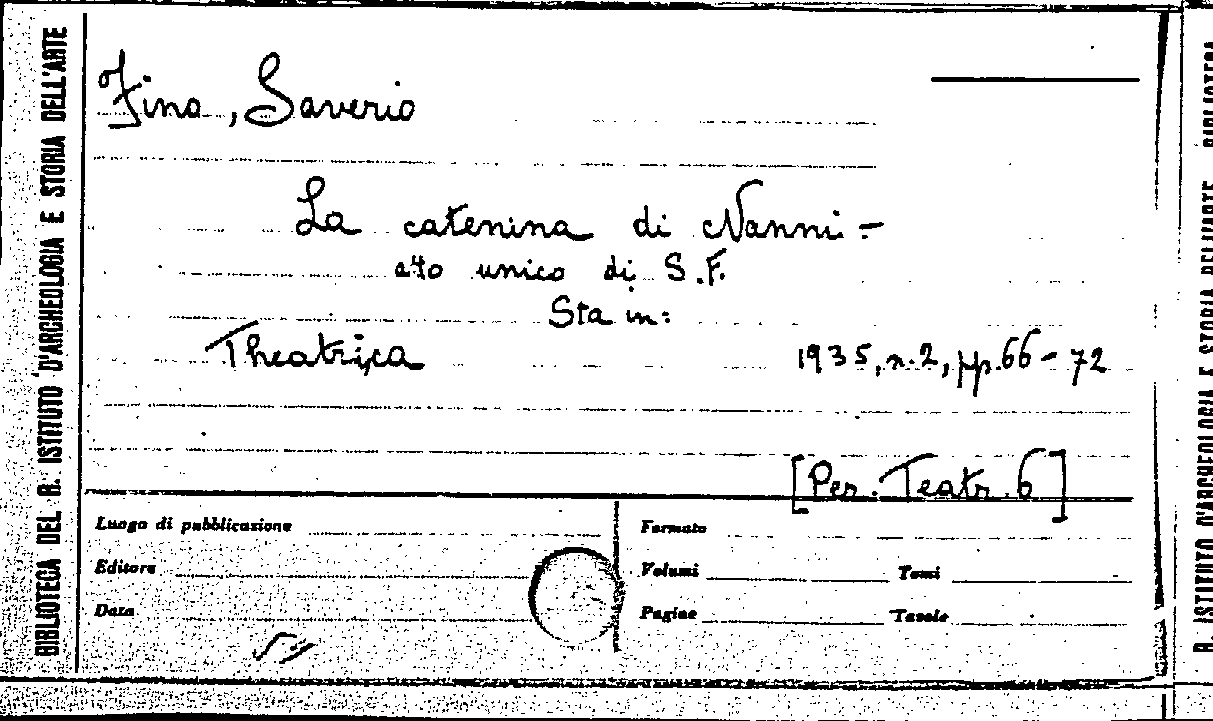 BIBLIOTECA DEL R. ISTITUTO D'ARCHEOLOGIA E STORIA DELL'ARTE
Fino, Saverio
La catenina di Nanni -
atto unico di S.F.
Sta in:
Theatrica 1935, n.2, pp.66-72
[Per. Teatr. 6]
Luogo di pubblicazione
Editore
Data
Formato
Volumi Tomi
Pagine Tavole
R. ISTITUTO D'ARCHEOLOGIA E STORIA DELL'ARTE BIBLIOTECA